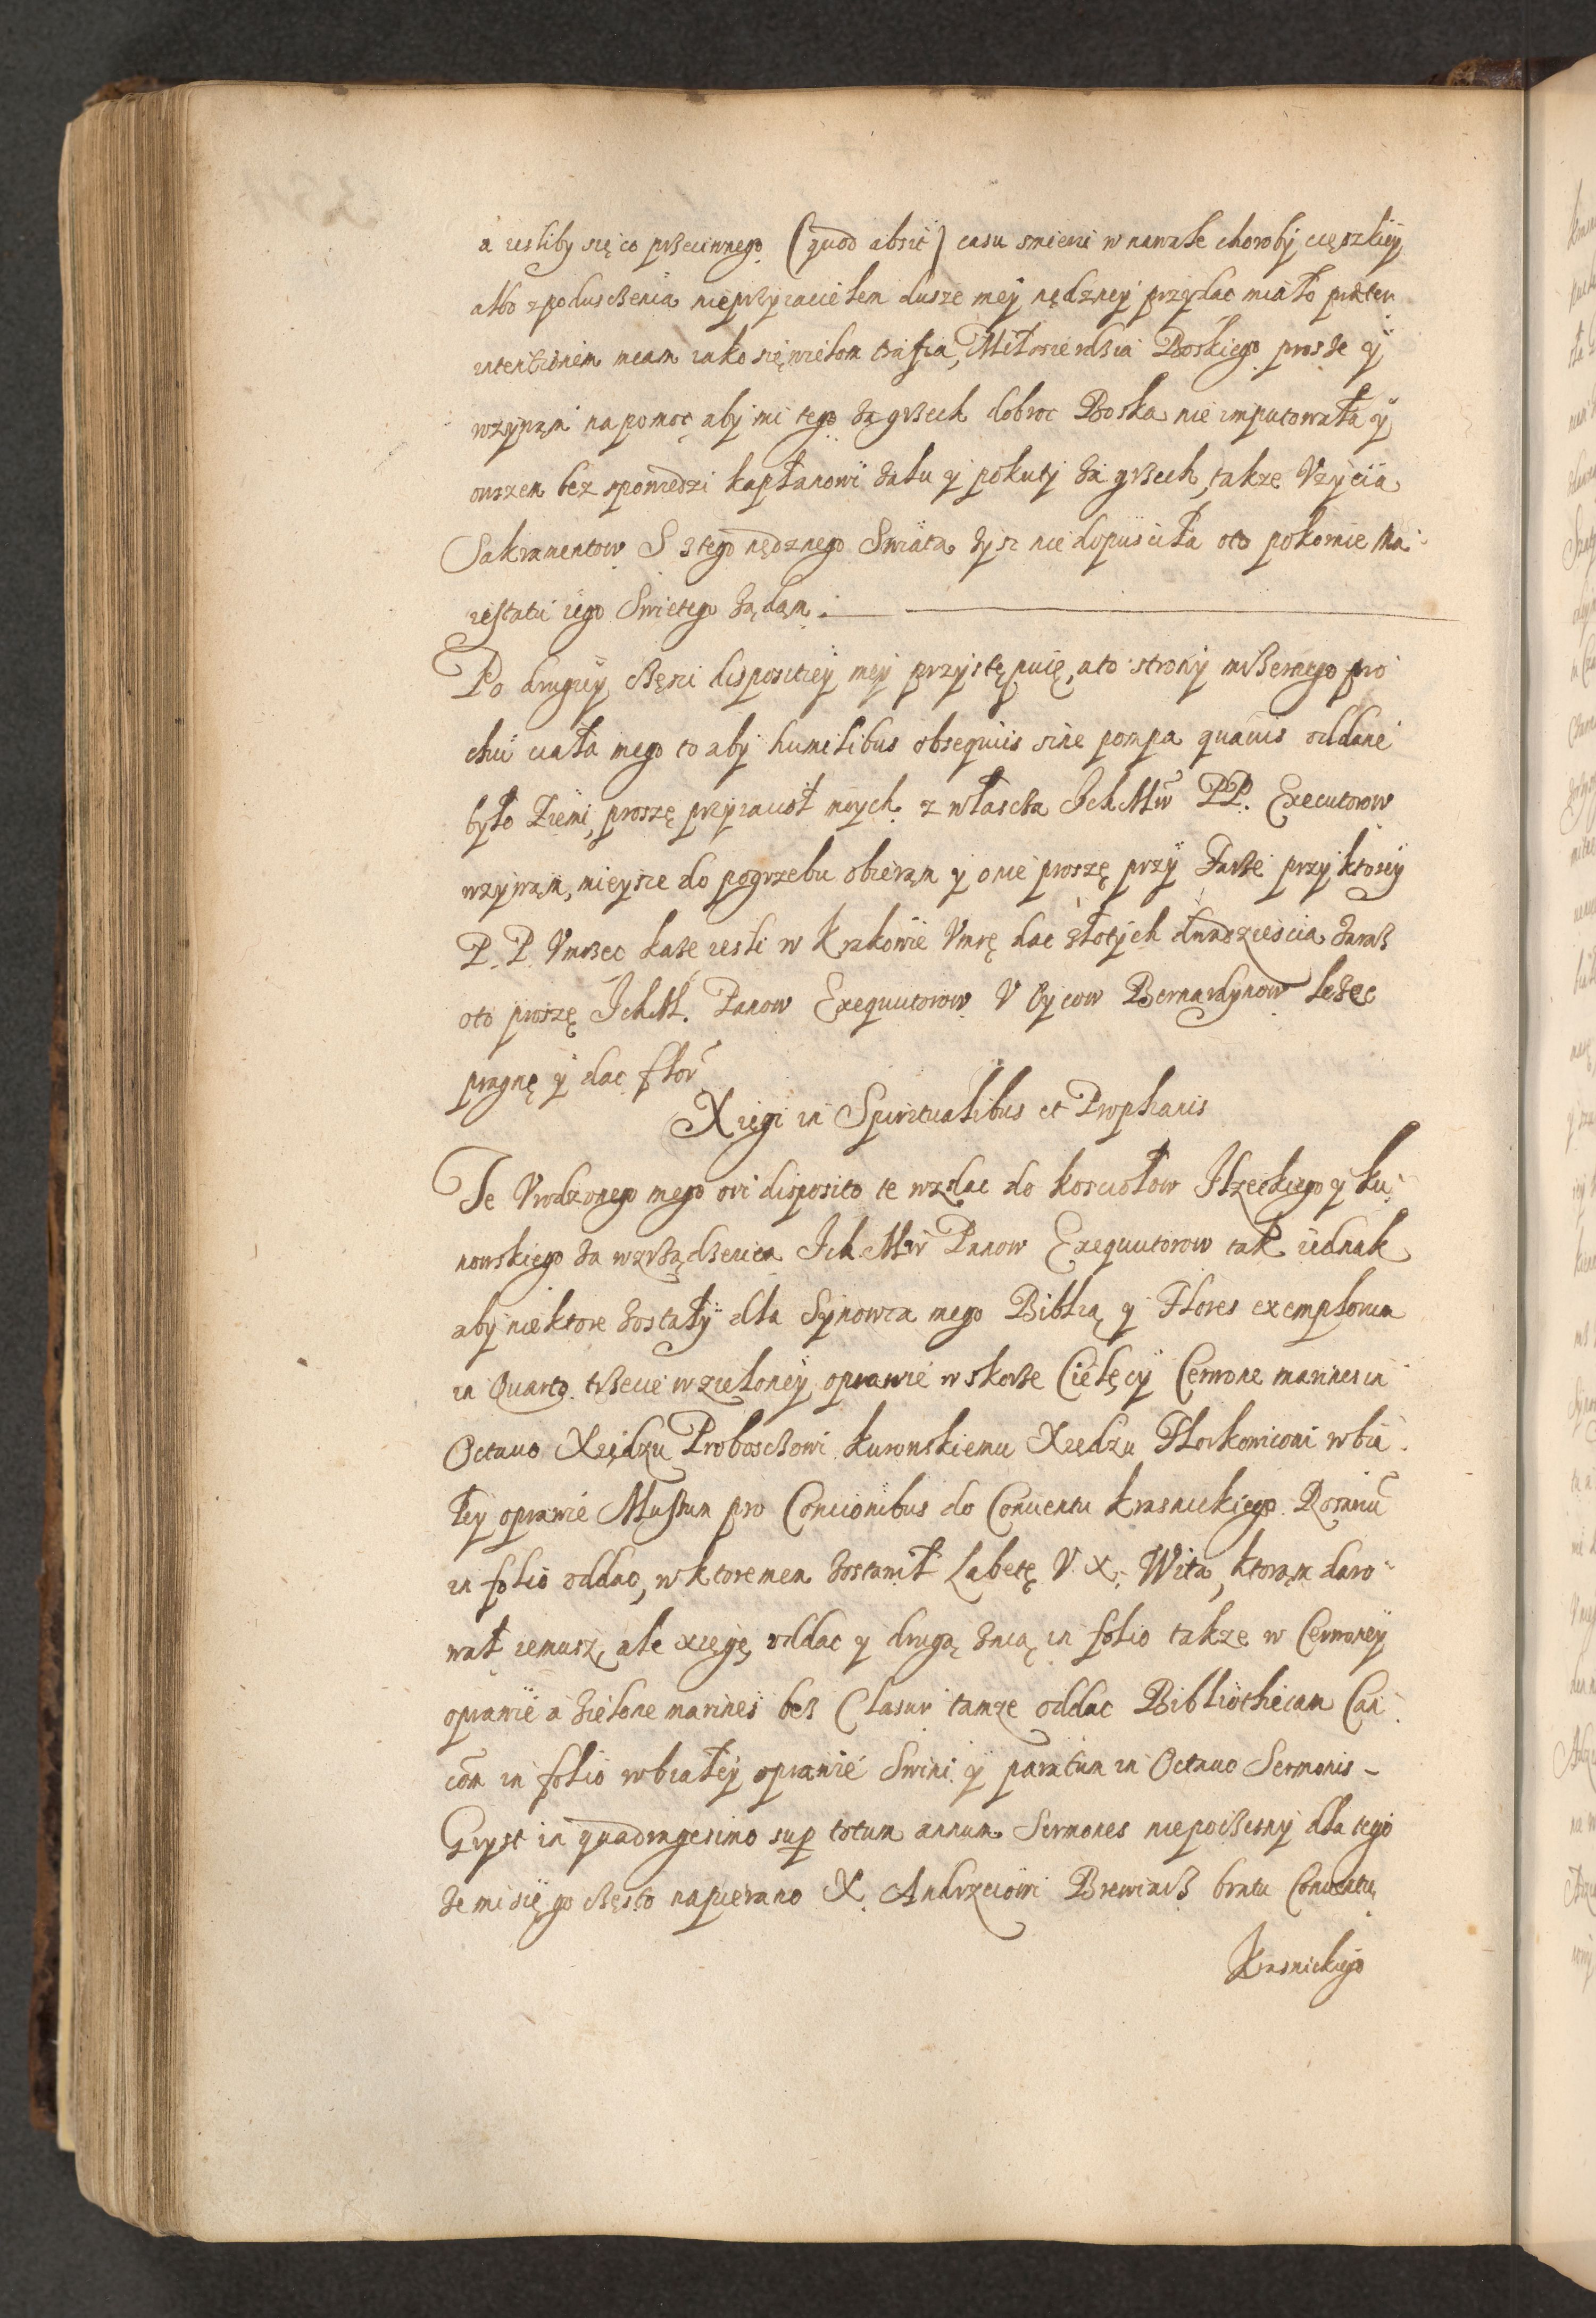 a iesliby się co przeciwnego (quod absit) casu smierci w nawale choroby cięszkiey
albo z poduscżenia nieprzyiacielem dusze mey nędzney przydac miało præter
intentionem meam iako się wielom trafia, Miłosierdzia Boskiego prosże y
wzywam na pomoc aby mi tego za grzech dobroc Boska nie imputowała y
owszem bez spowiedzi kapłanowi żalu y pokuty za grzech, takze Vzycia
Sakramentow S z tego nędznego Swiata zysc nie dopusciła oto pokornie Ma
iestatu iego Swietego żądam.
Po drugiey częsci dispositiey mey przystępuię, a to strony mizernego pro
chu ciała mego to aby humilibus obsequiis sine pompa quauis oddane
było Ziemi, proszę przyiacioł moych z włascża Ich Mw PP. Executorow
wzywam, mieysce do pogrzebu obieram y o nie proszę przy Farże przy ktorey
P. P. Vmrzec każe iesli w Krakowie Vmrę dac złotych dwadziescia zaraz
oto proszę Ich M. Panow Exequutorow V Oycow Bernardynow leżec
pragnę y dac flor
Xięgi in Spiritualibus et Prophanis
Te Vrodzonego mego ori disposito te wzdac do kosciołow Ilzeckiego y ku
nowskiego za wzrządzenien Ich Mw Panow Exequutorow tak iednak
aby niektore zostały dla Synowca mego Biblią y Flores exemplorum
in Quarto trzecie w zieloney oprawie w skorze Cielęcy Cerwone marines in
Octauo Xiędzu Probosczowi kunowskiemu Xiędzu Florkowiconi w bia
łey oprawie Mussum pro Concionibus do Conuentu krasnickiego Rosariu
in folio oddac, w ktoremem zostawił Labetę V X. Wita, ktoram daro
wał iemusz, ale xięgę oddac y drugą znią in folio takze w Cerwoney
oprawie a zielone marines bez Clasur tamze oddac Bibliothecam Can
com in folio w białey oprawie Swini y paratum in Octauo Sermonis
Gryst in quadragesimo sup totum annum Sermones niepoczesny dla tego
że mi się go często napierano X. Andrzeiowi Brewiarz bratu Conuentu
Krasnickiego